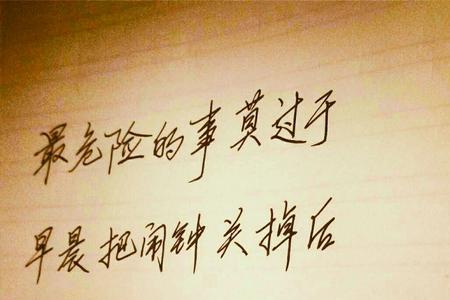 最危险的事莫过于
早晨把闹钟关掉后